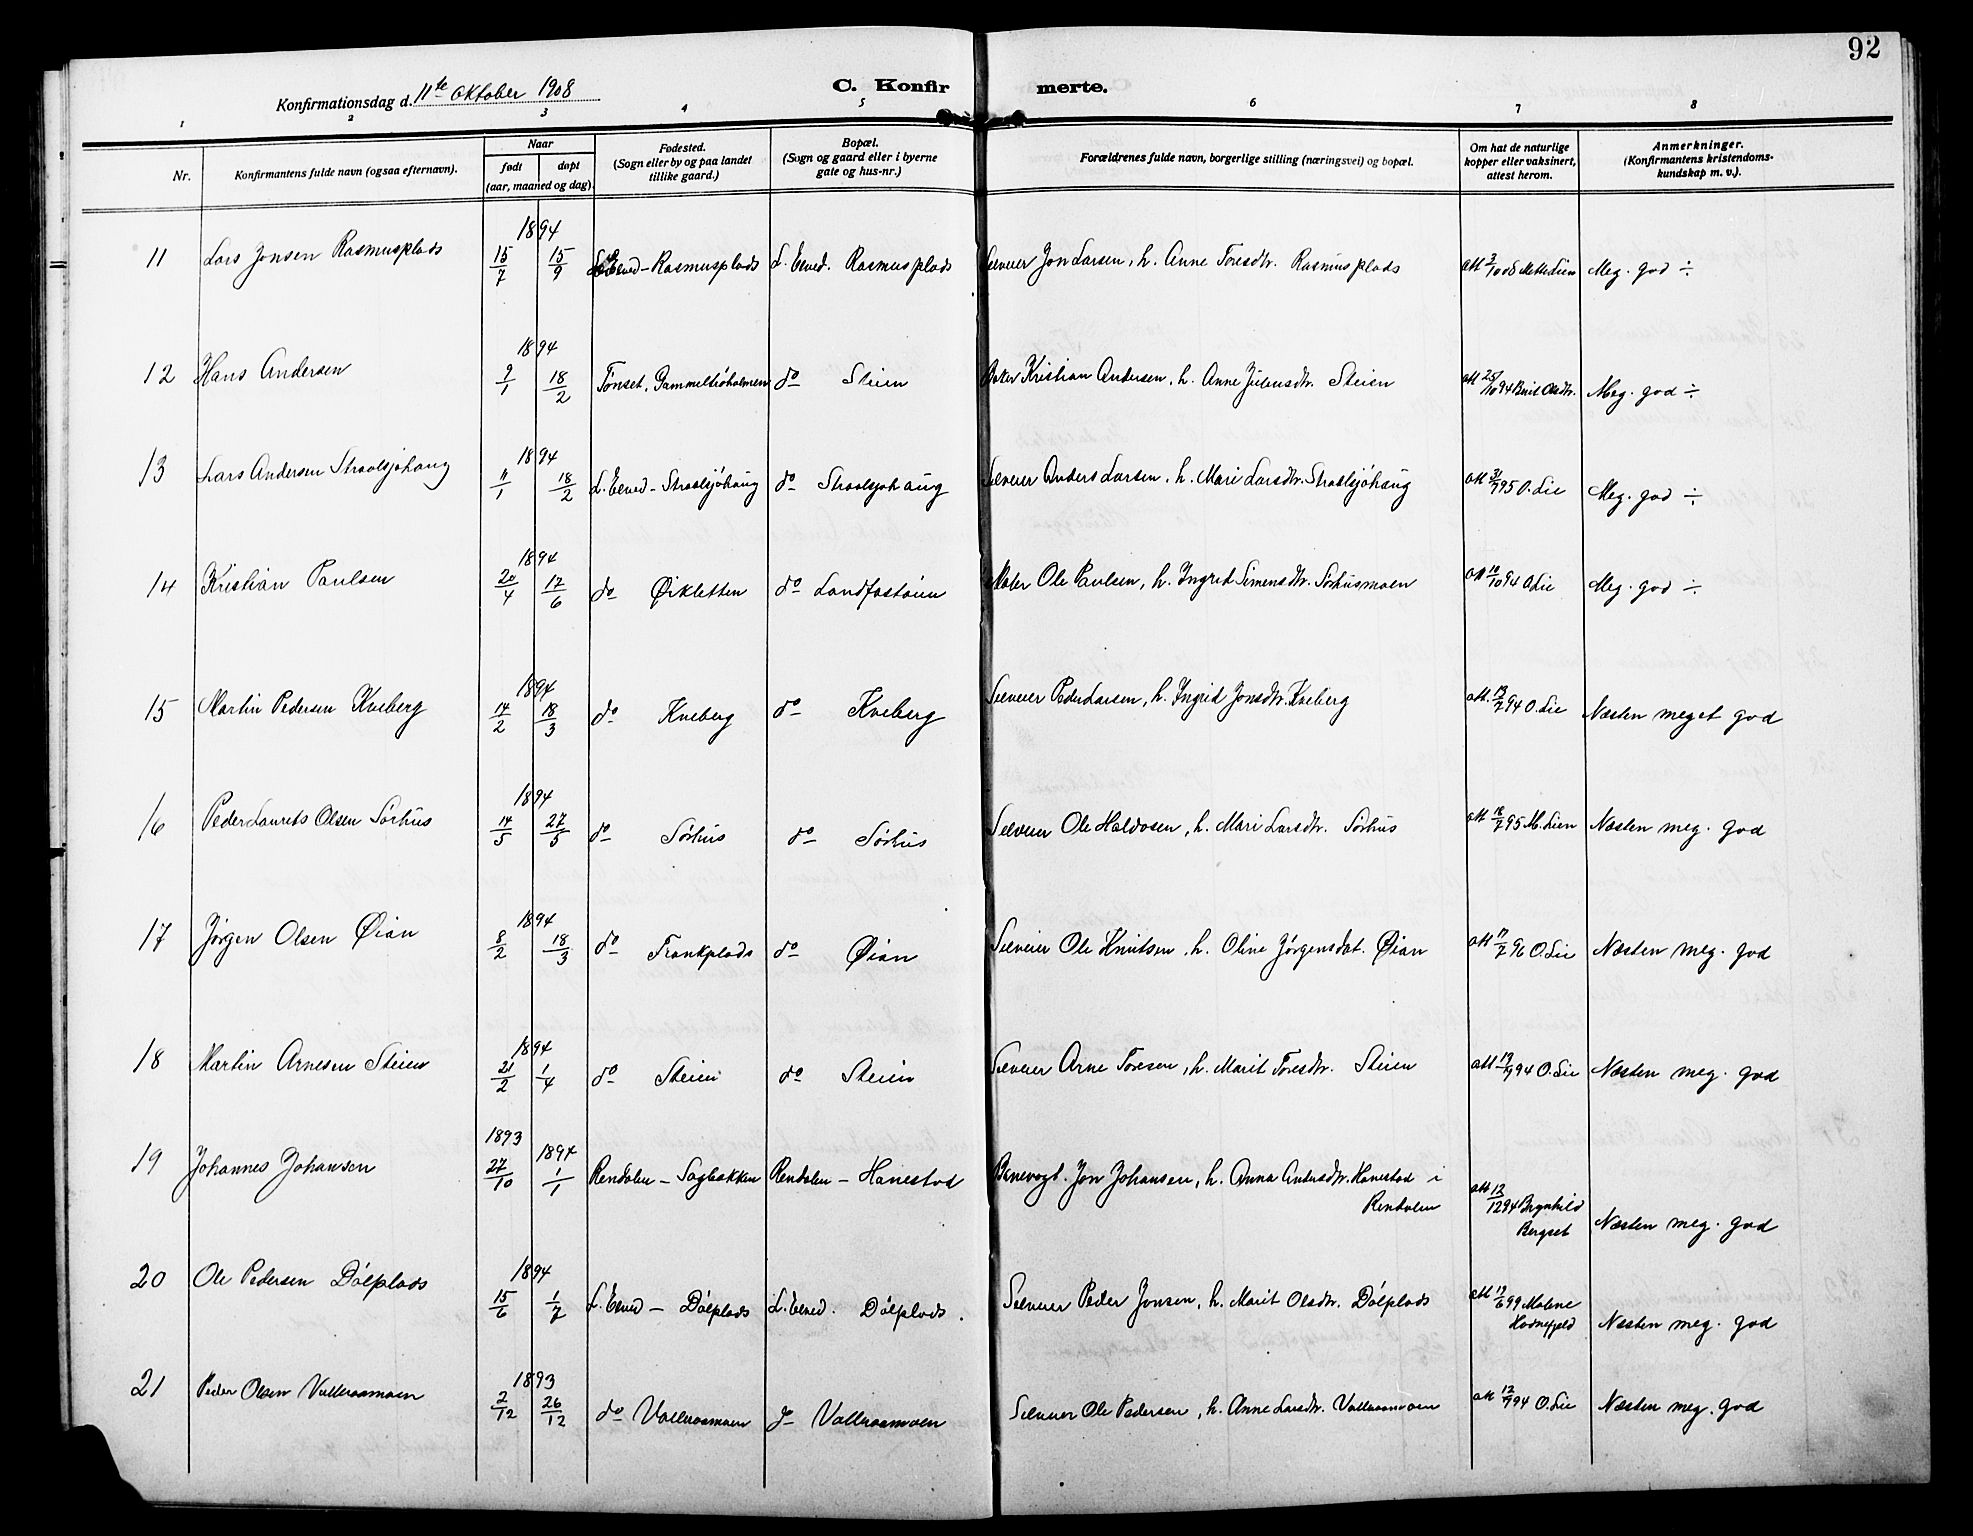 92
Konfirmationsdag d. 11te Oktober 1908
C. Konfir merte.
1 2 3 4 5 6 7 8
Nr.
Konfirmantens fulde navn (ogsaa efternavn).
Naar
født døpt
(aar, maaned og dag)
Fødested.
(Sogn eller by og paa landet
tillike gaard.)
Bopæl.
(Sogn og gaard eller i byerne
gate og hus-nr.)
Forældrenes fulde navn, borgerlige stilling (næringsvei) og bopæl.
Om hat de naturlige
kopper eller vaksinert,
attest herom.
Anmerkninger.
(Konfirmantens kristendoms-
kundskap m. v.).
1894
11 Lars Jonsen Rasmusplads 15/7 15/9 Rasmusplads L. Elved. Rasmusplads Selveier Jon Larsen, h. Anne Toresdtr. Rasmusplads att 3/10 08 Mette Lien Meg. god ÷
1894
12 Hans Andersen 9/1 18/2 Tønset, do Steien Kristian Andersen, h. Anne Steien att Olsdtr. Meg. god ÷
1894
13 Lars Andersen Straalsjøhaug 11/1 18/2 L. Elved - Straalsjøhaug do Straalsjøhaug Selveier Anders Larsen, h. Mari Larsdtr. Straalsjøhaug att 95 O. Lie Meg. god ÷
1894
14 Kristian Paulsen 20/4 17/6 do Øikletten do Landfastøien Maler Ole Paulsen, h. Ingrid Simensdtr. Sørhusmoen att 10/10 94 O. Lie Meg. god ÷
1894
15 Martin Pedersen Kveberg 14/2 18/3 do Kveberg do Kveberg Selveier Peder Larsen, h. Ingrid Jonsdtr. Kveberg att. 94 O. Lie Næsten meget god
1894
16 Peder Laurits Olsen Sørhus 14/5 27/5 do Sørhus do Sørhus Selveier Ole Haldosen, h. Mari Larsdtr. Sørhus att 95 M. Lien Næsten meg. god
1894
17 Jørgen Olsen Øian 8/2 18/3 do Tronkplads do Øian Selveier Ole Knutsen, h. Oline Jørgensdat. Øian att 96 O. Lie Næsten meg. god
1894
18 Martin Arnesen Steien 21/2 1/4 do Steien do Steien Selveier Arne Toresen, h. Marit Toresdtr. Steien att 94 O. Lie Næsten meg. god
1893 1894
19 Johannes Johansen 27/10 1/1 Rendalen - Sagbakken Rendalen - Hanestad Banevogt. Jon Johansen, h. Anna Andersdtr. Hanestad i
Rendalen att 12/12 94 Brynhild
Bergset Næsten meg. god
1894
20 Ole Pedersen Dølplads 15/6 1/7 L. Elved - Dølplads L. Elved. Dølplads. Selveier Peder Jonsen, h. Marit Olsdtr. Dølplads att 99 Malene
Næsten meg. god
1893
21 Peder Olsen Vullroasmoen 2/12 26/12 do Vollroasmoen do Vollroasmoen Selveier Ole Pedersen, h. Anne Larsdtr. Vollroasmoen att 94 O. Lie Næsten meg. god